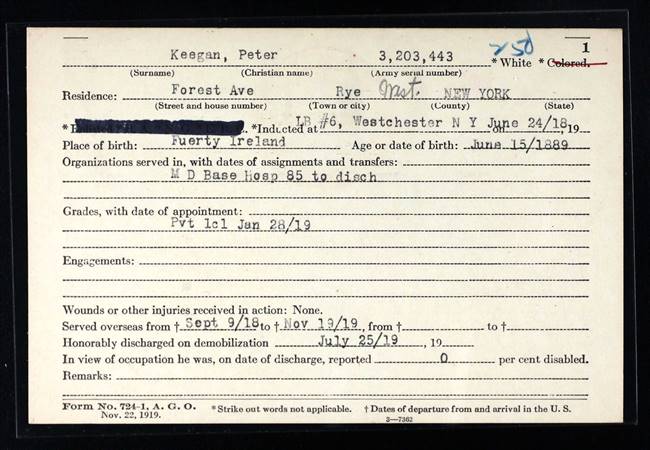 250 1
Keegan, Peter 3,203,443 * White * Colored.
(Surname) (Christian name) (Army serial number)
Residence: Forest Ave Rye West. NEW YORK
(Street and house number) (Town or city) (County) (State)
*Inducted at LB #6, Westchester N Y on June 24/18, 19
Place of birth: Fuerty Ireland Age or date of birth: June 15/1889
Organizations served in, with dates of assignments and transfers:
M D Base Hosp 85 to disch
Grades, with date of appointment:
Pvt 1cl Jan 28/19
Engagements:
Wounds or other injuries received in action: None.
Served overseas from † Sept 9/18 to † Nov 19/19, from † to †
Honorably discharged on demobilization July 25/19, 19
In view of occupation he was, on date of discharge, reported 0 per cent disabled.
Remarks:
Form No. 724-1, A. G. O. *Strike out words not applicable. † Dates of departure from and arrival in the U. S.
Nov. 22, 1919. 3—7362